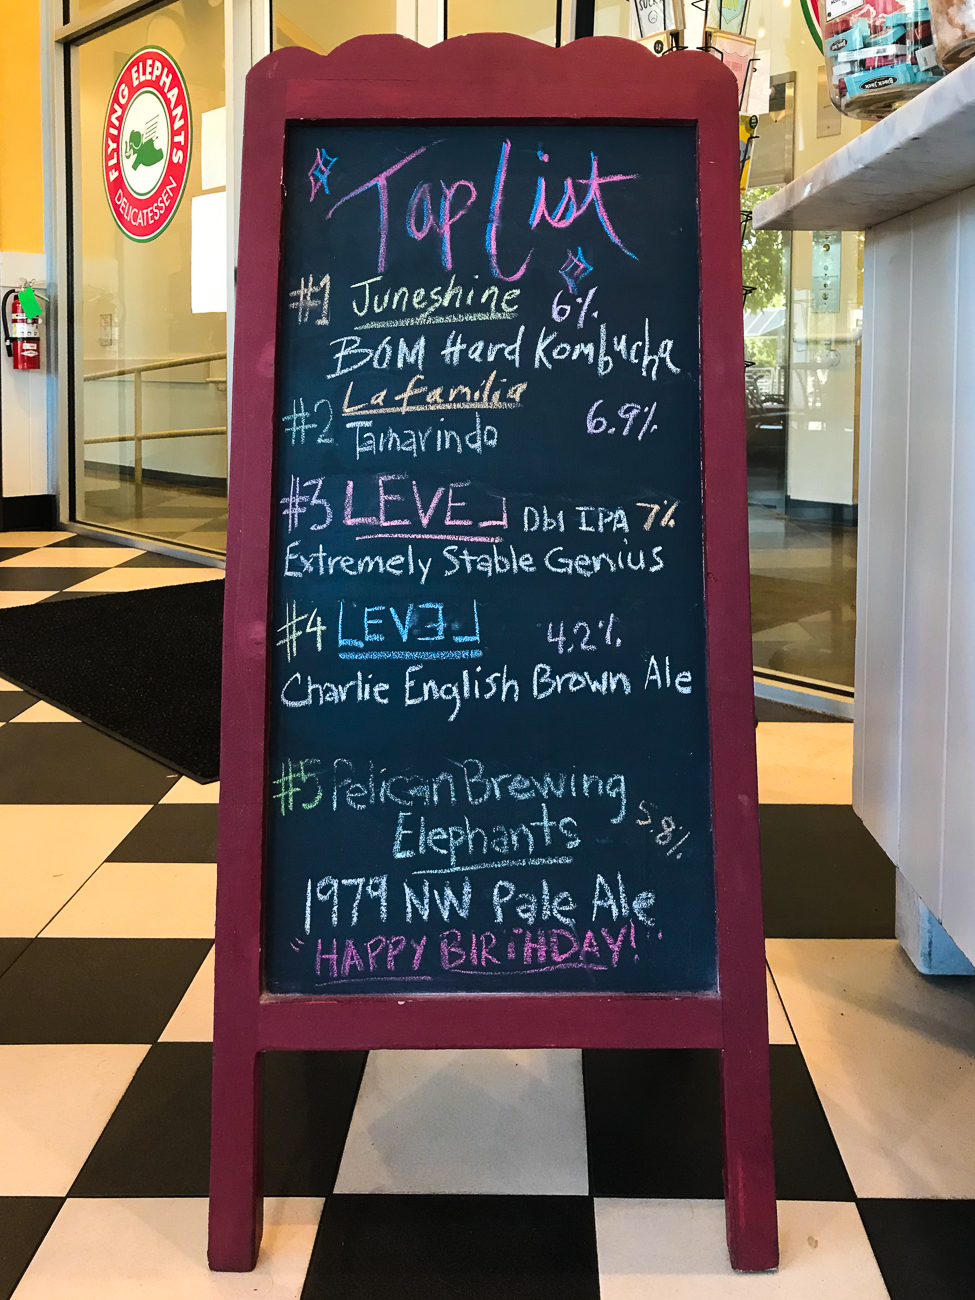 FLYING ELEPHANTS
DELICATESSEN
Tap List
#1 Juneshine 6%
BOM Hard Kombucha
#2 La familia 6.9%
Tamarindo
#3 LEVEL Dbl IPA 7%
Extremely Stable Genius
#4 LEVEL 4.2%
Charlie English Brown Ale
#5 Pelican Brewing
Elephants 5.8%
1979 NW Pale Ale
"HAPPY BIRTHDAY!"
Black Jack